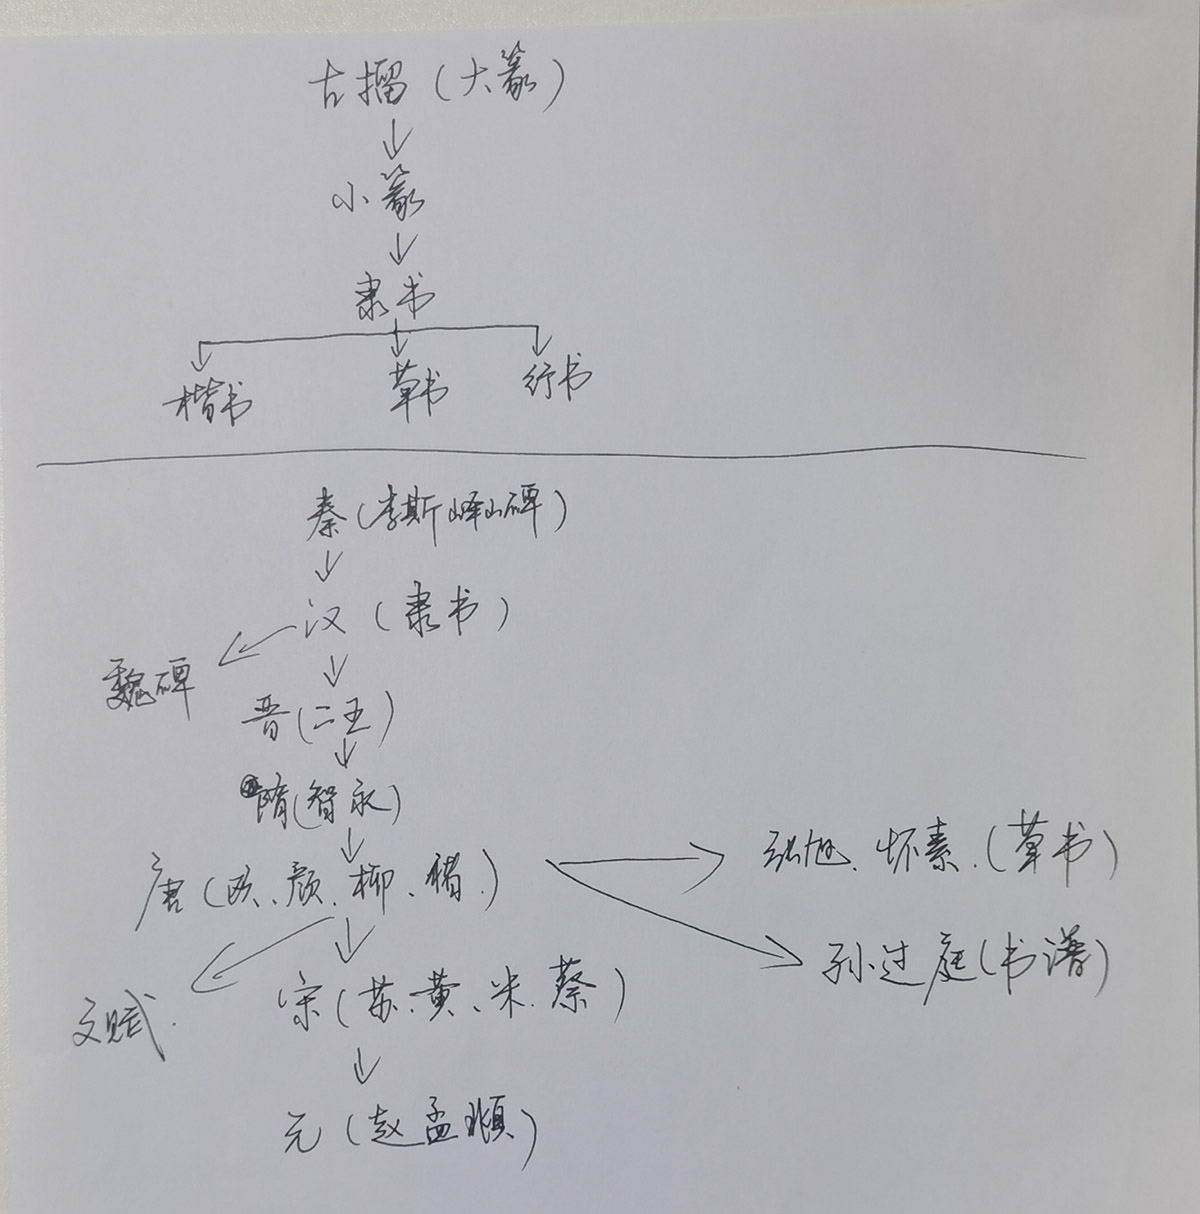 古摺（大篆）
小篆
隶书
楷书 草书 行书
秦（李斯峄山碑）
汉（隶书）
魏碑
晋（二王）
隋（智永）
唐（欧、颜、柳、褚）
张旭、怀素（草书）
孙过庭（书谱）
文赋
宋（苏、黄、米、蔡）
元（赵孟頫）